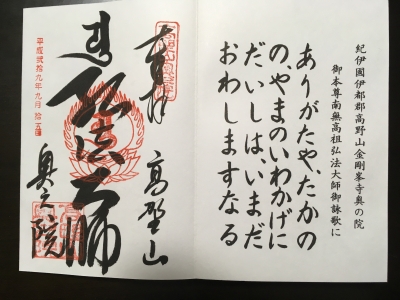 紀伊國伊都郡高野山金剛峯寺奥の院
御本尊南無高祖弘法大師御詠歌に
ありがたや、たかの
の、やまのいわかげに
だいしは、いまだ
おわしますなる
奉拝
高野山
弘法大師
奥之院
平成弐拾九年九月拾五日